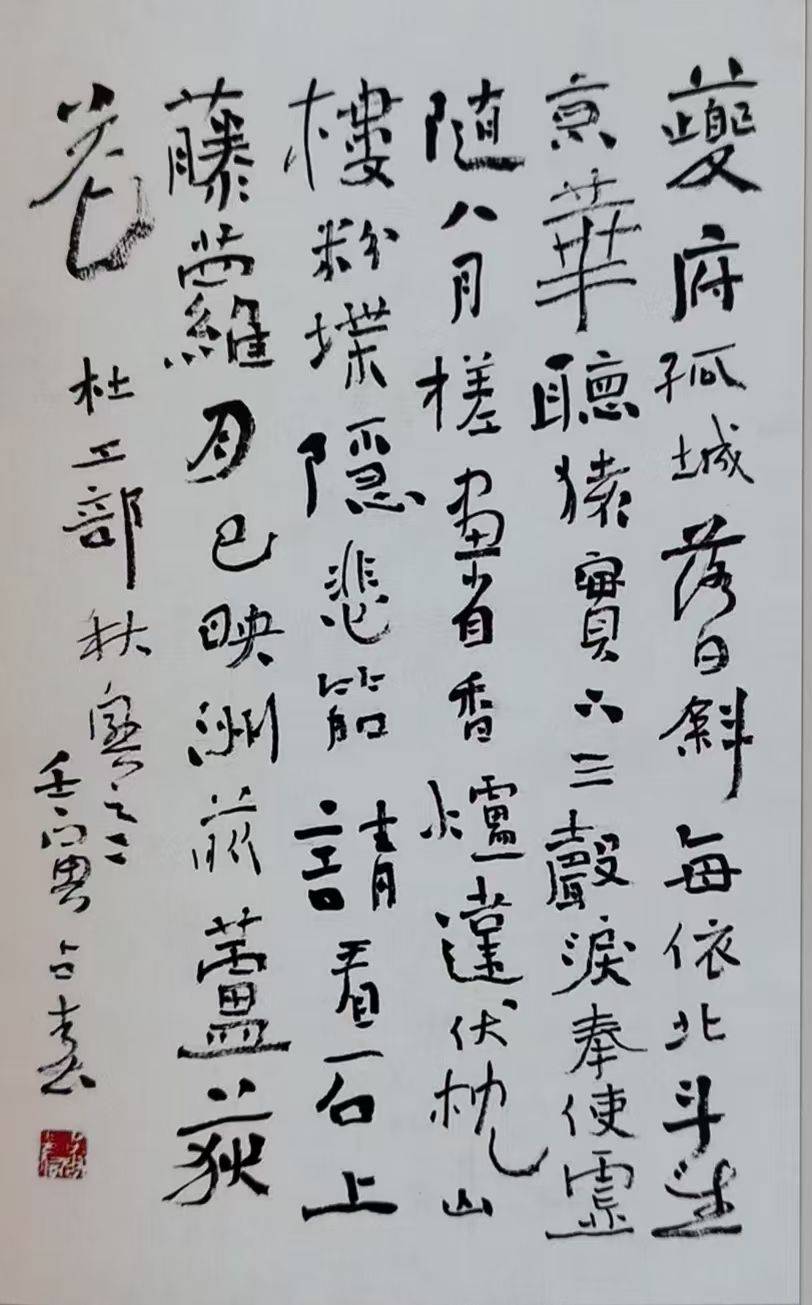 夔府孤城落日斜每依北斗望
京華聽猿實下三聲淚奉使虛
隨八月槎畫省香爐違伏枕山
樓粉堞隱悲笳請看石上
藤蘿月已映洲前蘆荻
花
杜工部秋興之二
壬寅占書